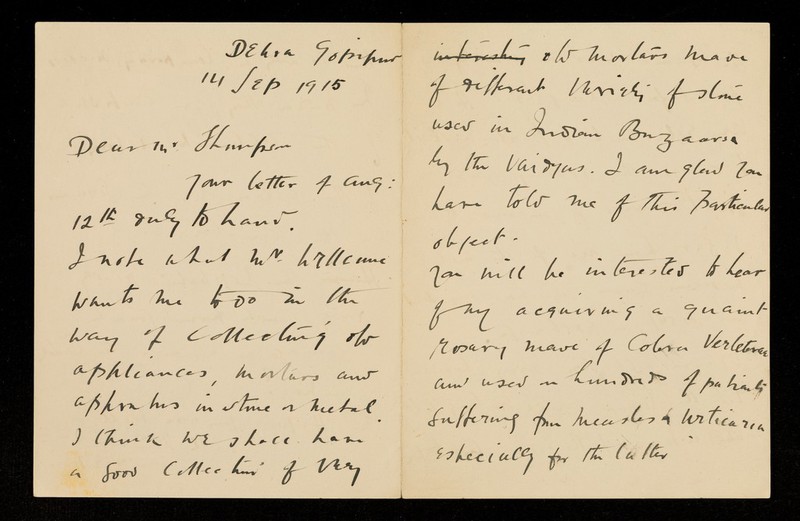 Dehra Gopipur
14 Sep 1915
Dear Mr Thompson
your letter of Aug:
12th duly to hand.
I note what Mr Wellcome
wants me to do in the
way of collecting old
appliances, mortars and
apparatus in stone or metal.
I think we shall have
a good collection of very
interesting old mortars made
of different variety of stone
used in Indian Buzaars
by the Vaidyas. I am glad you
have told me of this particular
object.
You will be interested to hear
of my acquiring a quaint
rosary made of Cobra Vertebrae
and used on hundreds of patients
suffering from measles & urticaria
especially for the latter